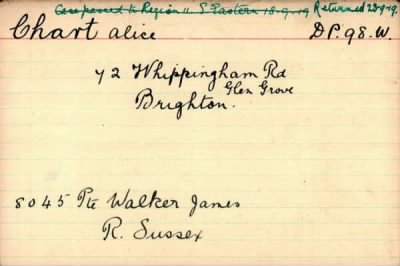 Case passed to Region 11. S Eastern 18-9-19 Returned 23-9-19.
Chart Alice D.P. 98. W.
72 Whippingham Rd
Glen Grove
Brighton.
8045 Pte Walker James
R. Sussex